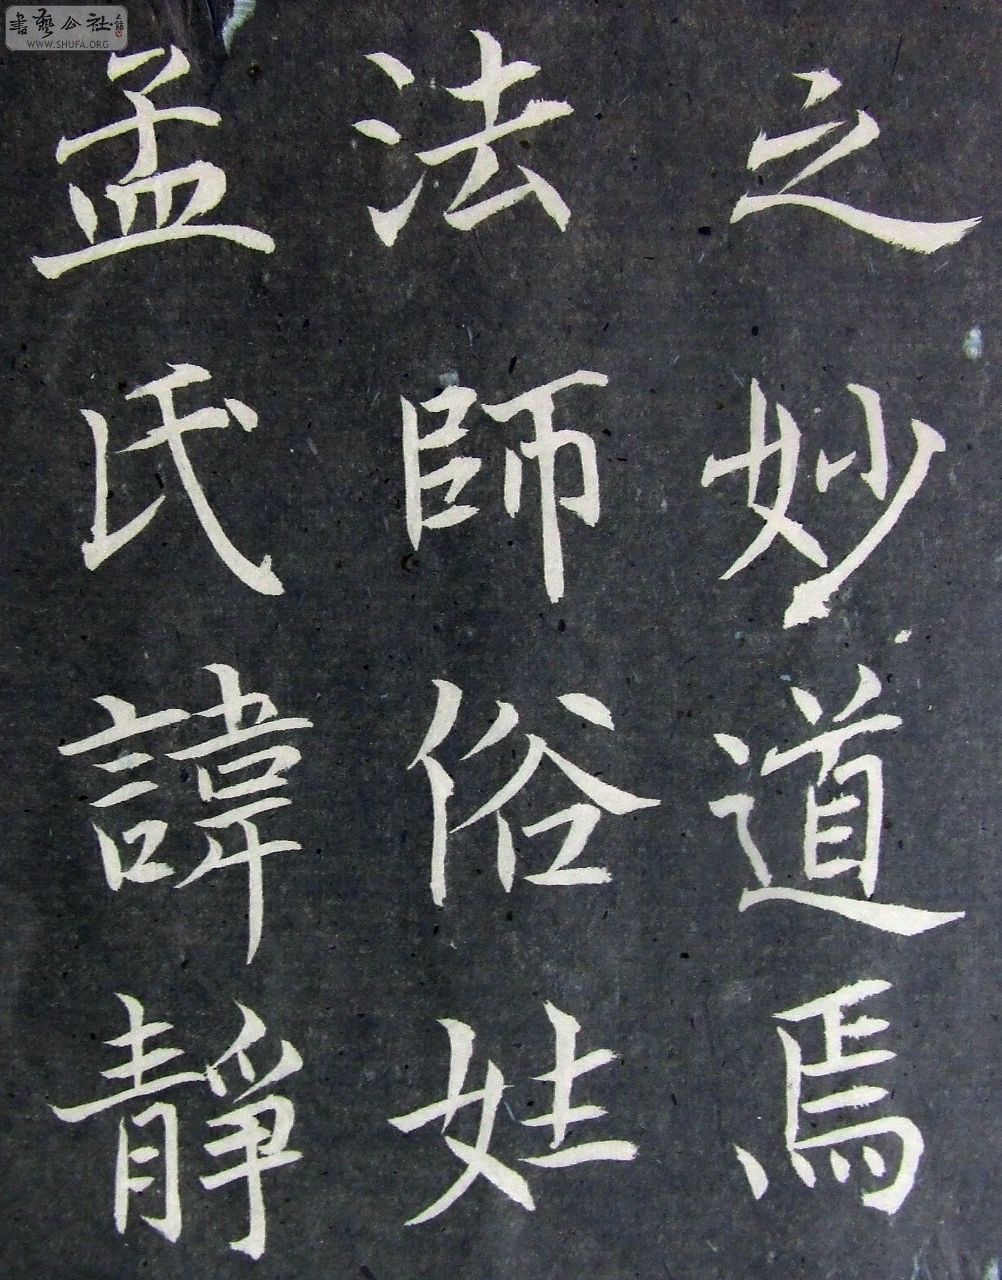 之妙道焉
法師俗姓
孟氏諱静
書藝公社
WWW.SHUFA.ORG